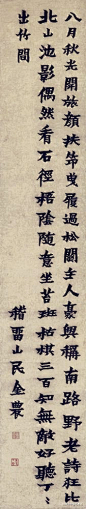 八月秋光開旅顏扶筇曳履過松關主人豪興稱南路野老詩狂比
北山池影偶然看石徑梧陰隨意坐苔班枯棋三百知無敵好聽〻〻
出竹間
稽留山民金農